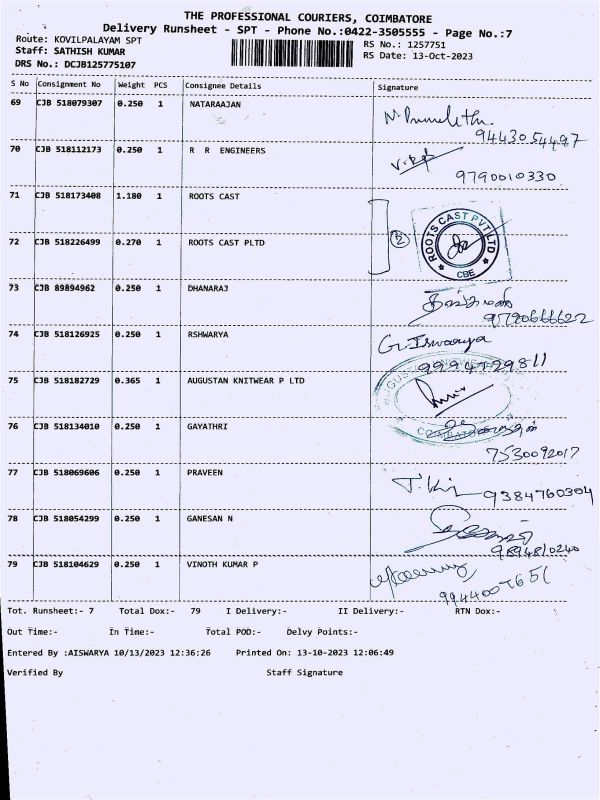 THE PROFESSIONAL COURIERS, COIMBATORE
Delivery Runsheet - SPT - Phone No.:0422-3505555 - Page No.:7
Route: KOVILPALAYAM SPT
Staff: SATHISH KUMAR
DRS No.: DCJB125775107
RS No.: 1257751
RS Date: 13-Oct-2023
S No Consignment No Weight PCS Consignee Details Signature
69 CJB 518079307 0.250 1 NATARAAJAN
9443054487
70 CJB 518112173 0.250 1 R R ENGINEERS
9790010330
71 CJB 518173408 1.180 1 ROOTS CAST
2
ROOTS CAST PVT LTD
CBE
72 CJB 518226499 0.270 1 ROOTS CAST PLTD
73 CJB 89894962 0.250 1 DHANARAJ
9790666622
74 CJB 518126925 0.250 1 RSHWARYA
G. Iswarya
75 CJB 518182729 0.365 1 AUGUSTAN KNITWEAR P LTD
76 CJB 518134010 0.250 1 GAYATHRI
7530092017
77 CJB 518069606 0.250 1 PRAVEEN
9384760304
78 CJB 518054299 0.250 1 GANESAN N
9894810240
79 CJB 518104629 0.250 1 VINOTH KUMAR P
Tot. Runsheet:- 7 Total Dox:- 79 I Delivery:- II Delivery:- RTN Dox:-
Out Time:- In Time:- Total POD:- Delvy Points:-
Entered By :AISWARYA 10/13/2023 12:36:26 Printed On: 13-10-2023 12:06:49
Verified By Staff Signature